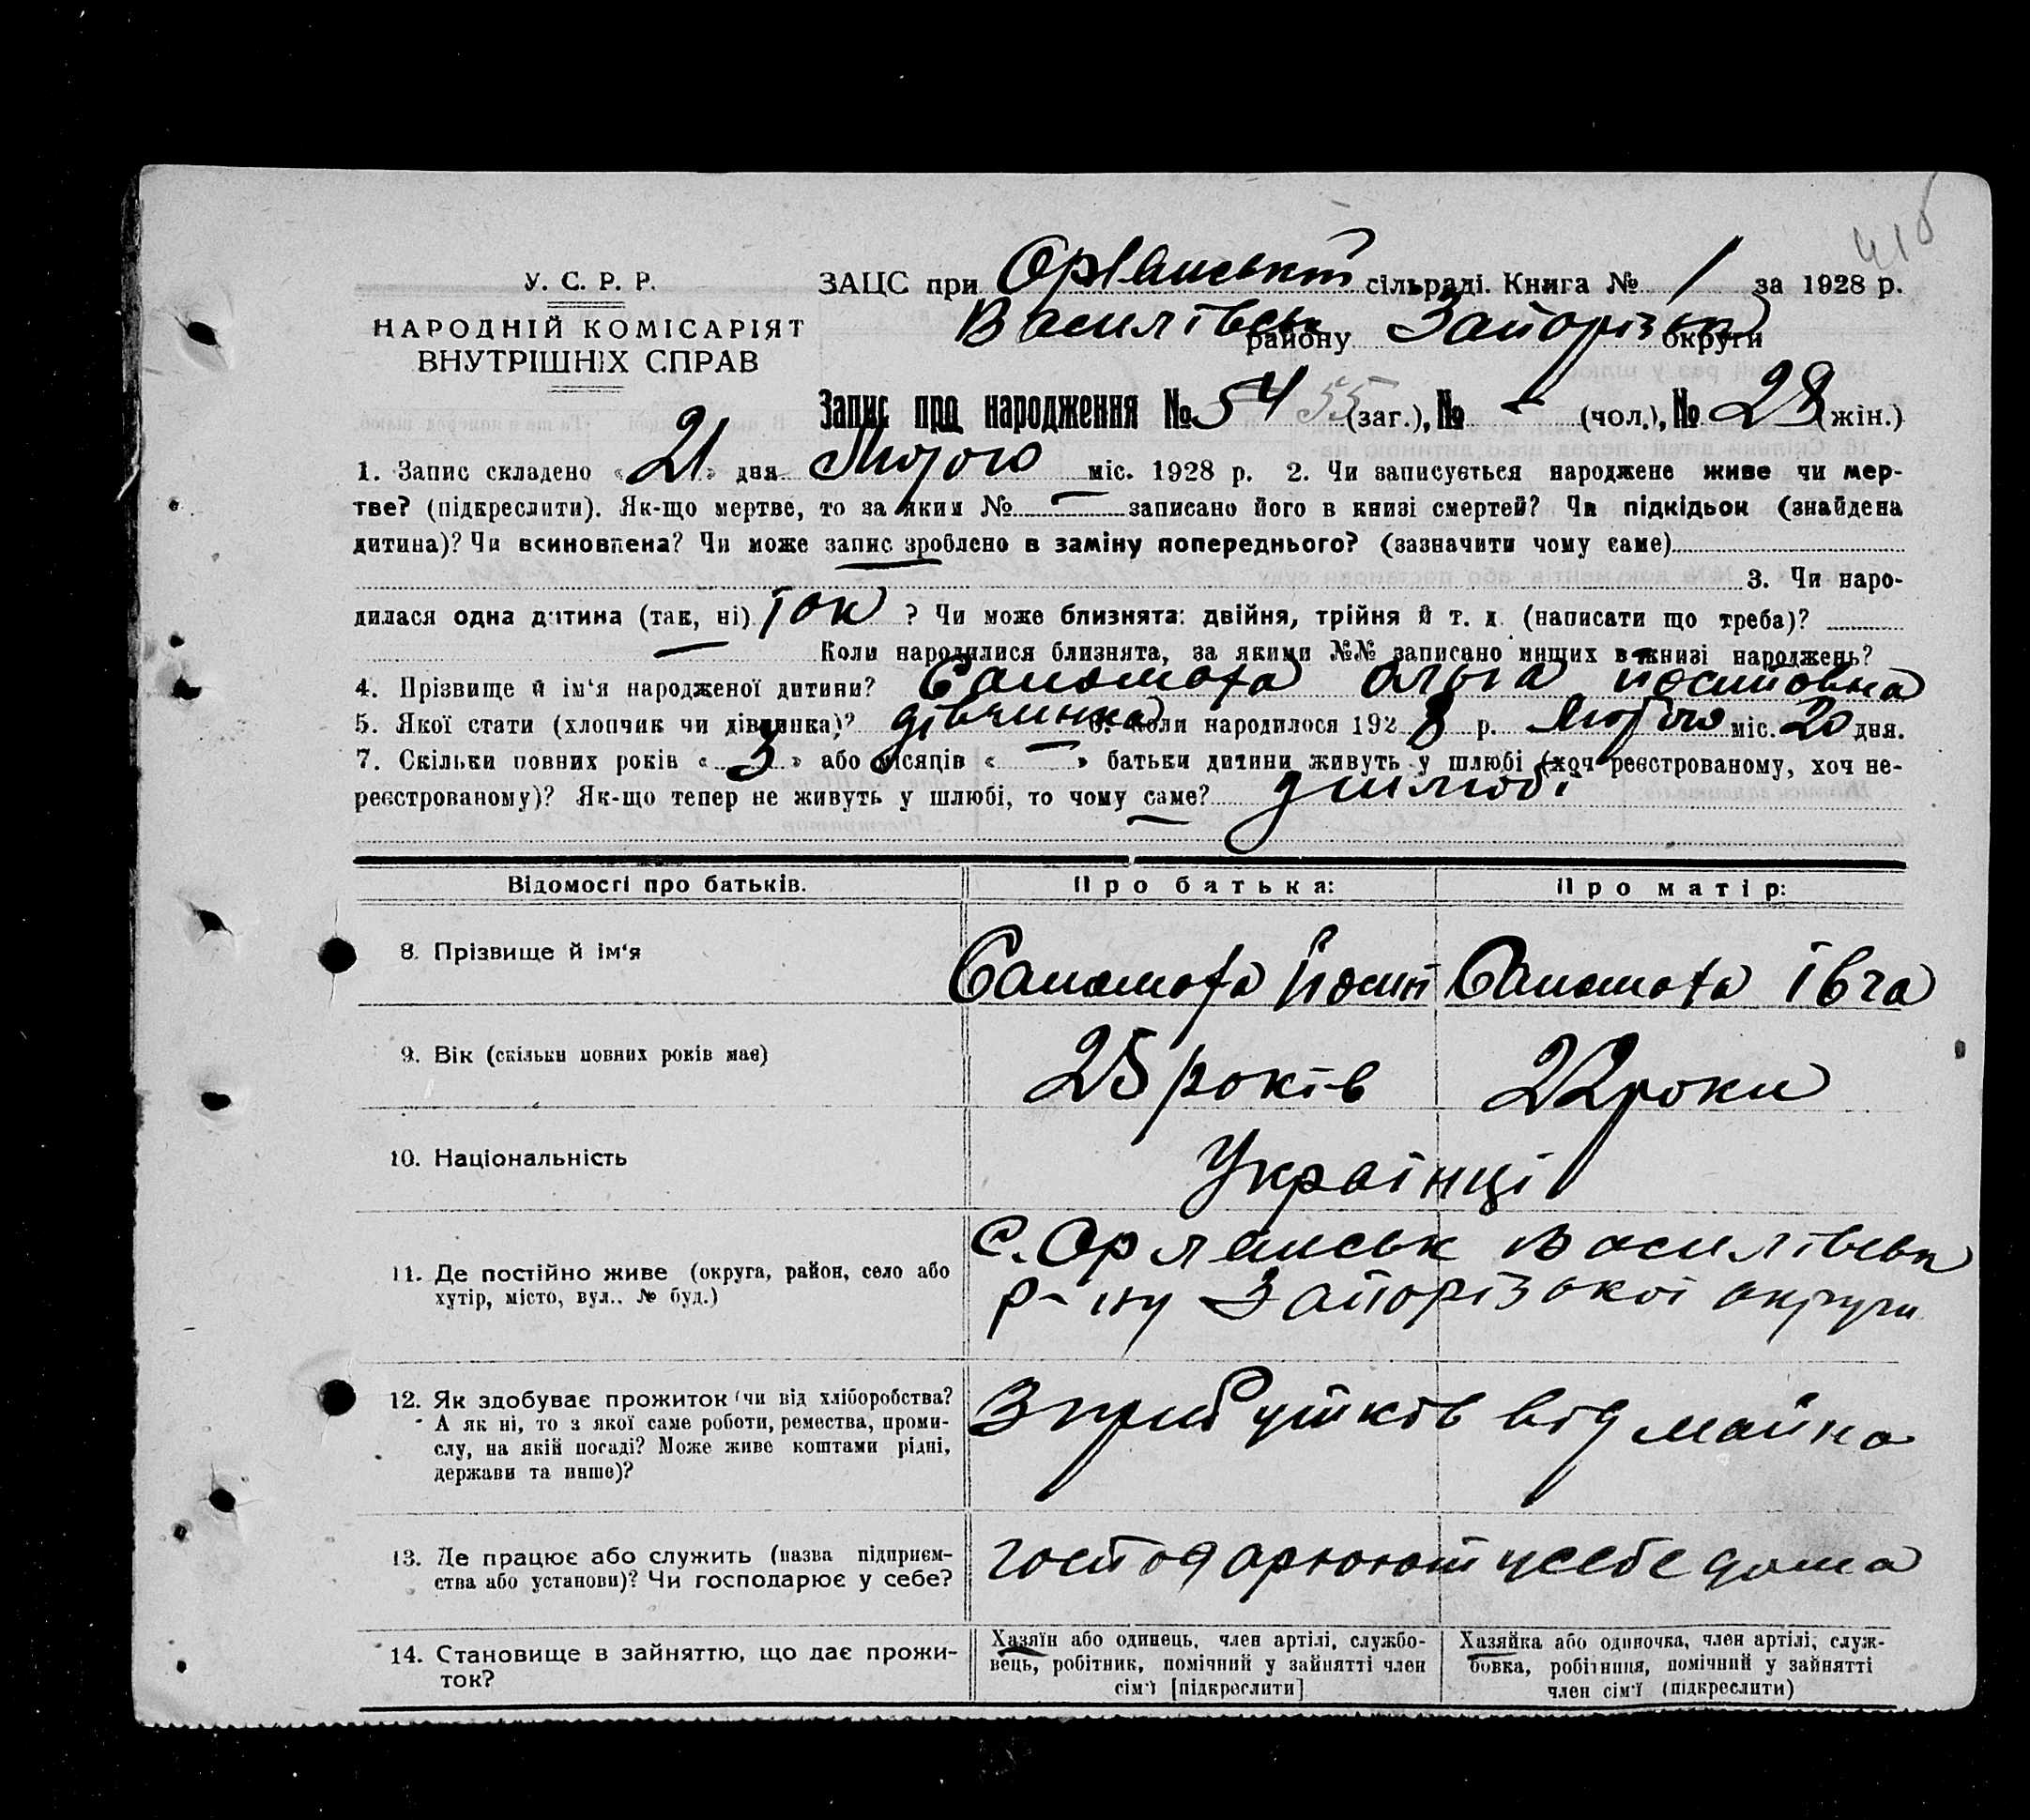 418
У. С. Р. Р.
НАРОДНІЙ КОМІСАРІЯТ
ВНУТРІШНІХ СПРАВ
ЗАЦС при Орлянській сільраді. Книга № 1 за 1928 р.
Василівськ району Запорізької округи
Запис про народження № 54 55 (заг.), № – (чол.), № 28 (жін.)
1. Запис складено «21» дня Лютого міс. 1928 р. 2. Чи записується народжене живе чи мер-
тве? (підкреслити). Як-що мертве, то за яким № – записано його в книзі смертей? Чи підкідьок (знайдена
дитина)? Чи всиновлена? Чи може запис зроблено в заміну попереднього? (зазначити чому саме)
3. Чи наро-
дилася одна дитина (так, ні) так ? Чи може близнята: двійня, трійня й т. д. (написати що треба)?
– Коли народилися близнята, за якими №№ записано инших в книзі народжень? –
4. Прізвище й ім'я народженої дитини? Ольга Йосиповна
5. Якої стати (хлопчик чи дівчинка)? дівчинка 6. Коли народилося 1928 р. Лютого міс. 20 дня.
7. Скільки повних років «3» або місяців «–» батьки дитини живуть у шлюбі (хоч реєстрованому, хоч не-
реєстрованому)? Як-що тепер не живуть у шлюбі, то чому саме? у шлюбі
Відомості про батьків. Про батька: Про матір:
8. Прізвище й ім'я Йосип Івга
9. Вік (скільки повних років має) 25 років 22 роки
10. Національність Українці
11. Де постійно живе (округа, район, село або
хутір, місто, вул., № буд.)
с. Орлянськ Василівськ
р-ну Запорізької округи
12. Як здобуває прожиток (чи від хліборобства?
А як ні, то з якої саме роботи, ремества, проми-
слу, на якій посаді? Може живе коштами рідні,
держави та инше)?
З прибутків від майна
13. Де працює або служить (назва підприєм-
ства або установи)? Чи господарює у себе?
господарюють у себе дома
14. Становище в зайняттю, що дає прожи-
ток?
Хазяїн або одинець, член артілі, службо-
вець, робітник, помічний у зайнятті член
сім'ї [підкреслити]
Хазяйка або одиночка, член артілі, служ-
бовка, робітниця, помічний у зайнятті
член сім'ї (підкреслити)